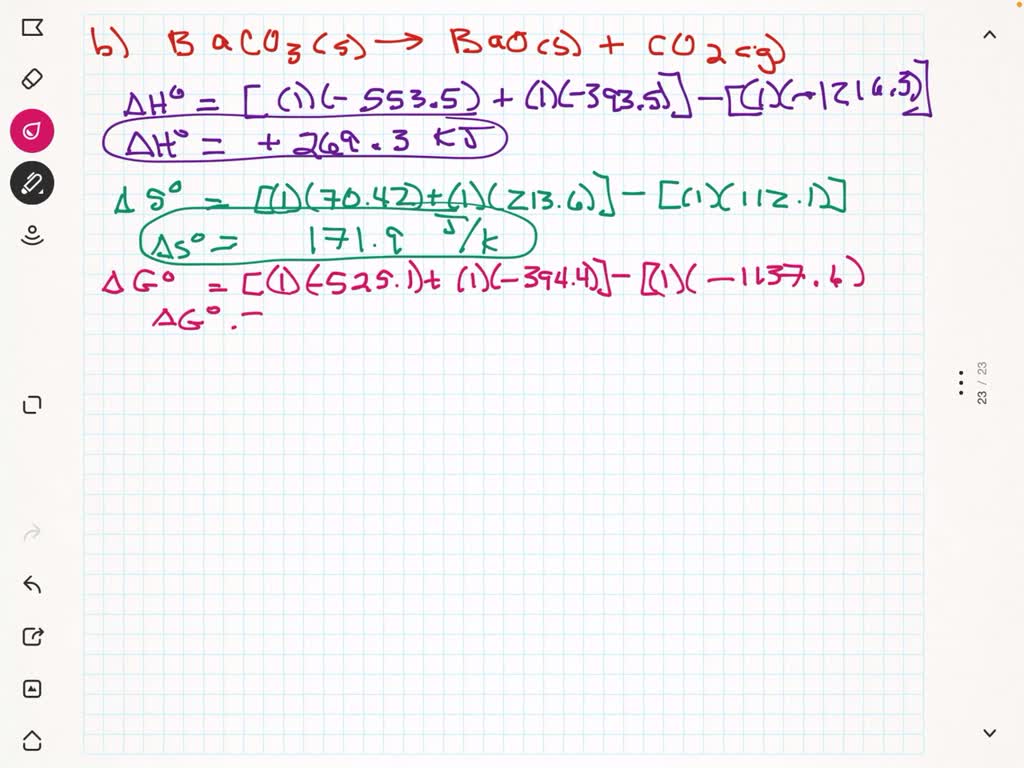 b) BaCO3(s) → BaO(s) + CO2(g)
ΔH° = [(1)(-553.5) + (1)(-393.5)] - [(1)(-1216.3)]
ΔH° = + 269.3 KJ
ΔS° = [(1)(70.42)+(1)(213.6)] - [(1)(112.1)]
ΔS° = 171.9 J/K
ΔG° = [(1)(-525.1)+(1)(-394.4)] - [(1)(-1137.6)
ΔG° =
23 / 23